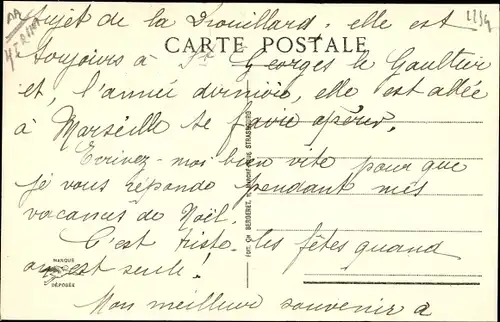 Sujet de la Drouillard, elle est
CARTE POSTALE
toujours à St Georges le Gaultier
et, l'année dernière, elle est allée
à Marseille se faire opérer.
Ecrivez-moi bien vite pour que
je vous réponde pendant mes
vacances de Noël.
C'est triste les fêtes quand
on est seule!
Mon meilleur souvenir à
MARQUE
DÉPOSÉE